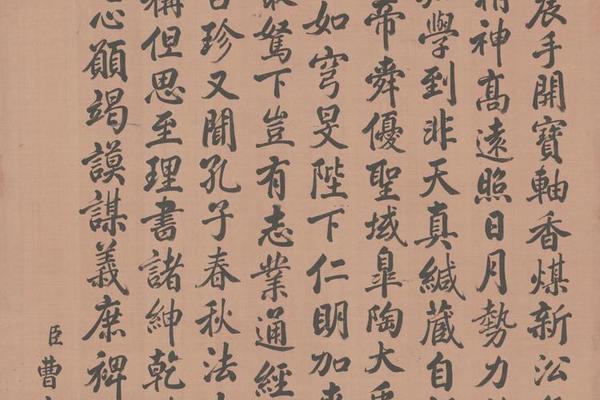 手開寶軸香煤新
神髙遠照日月勢力
學到非天真緘藏自
帝舜優聖域皐陶大
如穹旻陛下仁明加
駑下豈有志業通經
珍又聞孔子春秋法
稱但思至理書諸紳乾
願竭謨謀義庶裨
臣曹